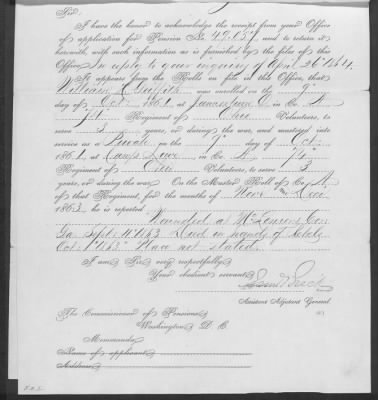 Sir:
I have the honor to acknowledge the receipt from your Office
of application for Pension No. 49,657 and to return it
herewith with such information as is furnished by the files of this
Office. In reply to your inquiry of April 26" 1864.
It appears from the Rolls on file in this Office, that
William Griffith was enrolled on the 9"
day of Oct. 1861 at in Co. A
74 Regiment of Ohio Volunteers, to
serve 3 years, or during the war, and mustered into
service as a Private on the 9" day of Oct.
1861, at Camp Lowe in Co. A 74
Regiment of Ohio Volunteers, to serve 3
years, or during the war. On the Muster Roll of Co. A
of that Regiment, for the months of Nov & Dec
1863 he is reported
Wounded at
Ga. Sept. 11" 1863. Died in hands of Rebels
Oct. 1" 1863. Place not stated.
I am Sir, very respectfully,
Your obedient servant,
Assistant Adjutant General.
The Commissioner of Pensions,
Washington D. C.
Memoranda
Name of applicant
Address